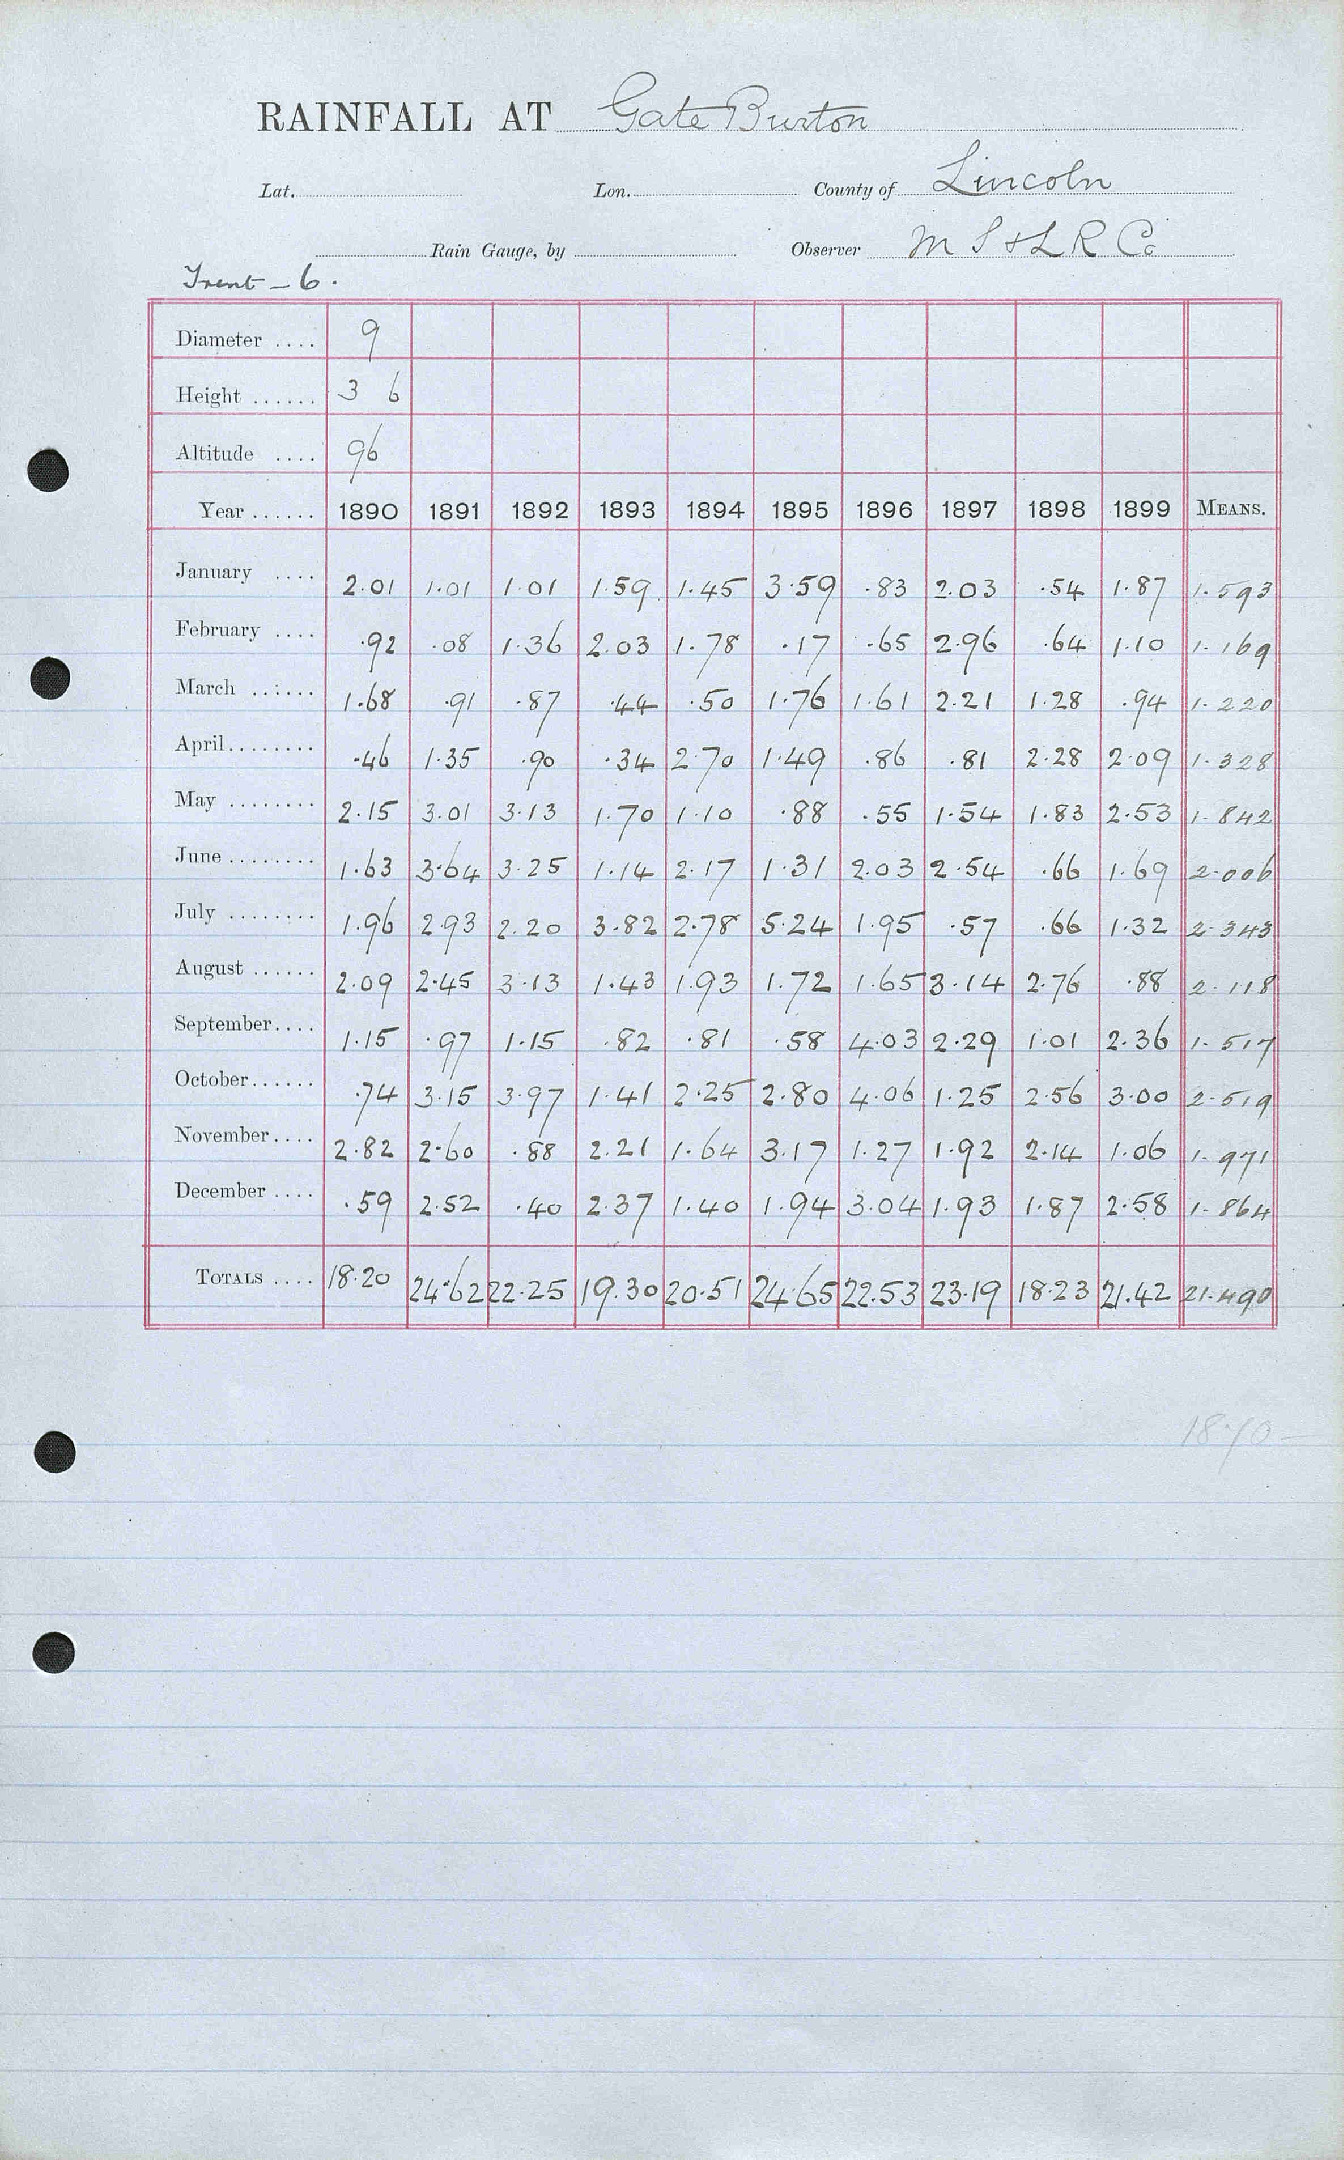 RAINFALL AT Gate Burton
Lat. Lon. County of Lincoln
Rain Gauge, by Observer M S & L R Co
Trent - 6.
Diameter .... 9
Height ...... 3 6
Altitude .... 96
Year ...... 1890 1891 1892 1893 1894 1895 1896 1897 1898 1899 MEANS.
January .... 2.01 1.01 1.01 1.59 1.45 3.59 .83 2.03 .54 1.87 1.593
February .... .92 .08 1.36 2.03 1.78 .17 .65 2.96 .64 1.10 1.169
March ...... 1.68 .91 .87 .44 .50 1.76 1.61 2.21 1.28 .94 1.220
April ........ .46 1.35 .90 .34 2.70 1.49 .86 .81 2.28 2.09 1.328
May ........ 2.15 3.01 3.13 1.70 1.10 .88 .55 1.54 1.83 2.53 1.842
June ........ 1.63 3.64 3.25 1.14 2.17 1.31 2.03 2.54 .66 1.69 2.006
July ........ 1.96 2.93 2.20 3.82 2.78 5.24 1.95 .57 .66 1.32 2.343
August ...... 2.09 2.45 3.13 1.43 1.93 1.72 1.65 3.14 2.76 .88 2.118
September .... 1.15 .97 1.15 .82 .81 .58 4.03 2.29 1.01 2.36 1.517
October ...... .74 3.15 3.97 1.41 2.25 2.80 4.06 1.25 2.56 3.00 2.519
November .... 2.82 2.60 .88 2.21 1.64 3.17 1.27 1.92 2.14 1.06 1.971
December .... .59 2.52 .40 2.37 1.40 1.94 3.04 1.93 1.87 2.58 1.864
TOTALS .... 18.20 24.62 22.25 19.30 20.51 24.65 22.53 23.19 18.23 21.42 21.490
1870-